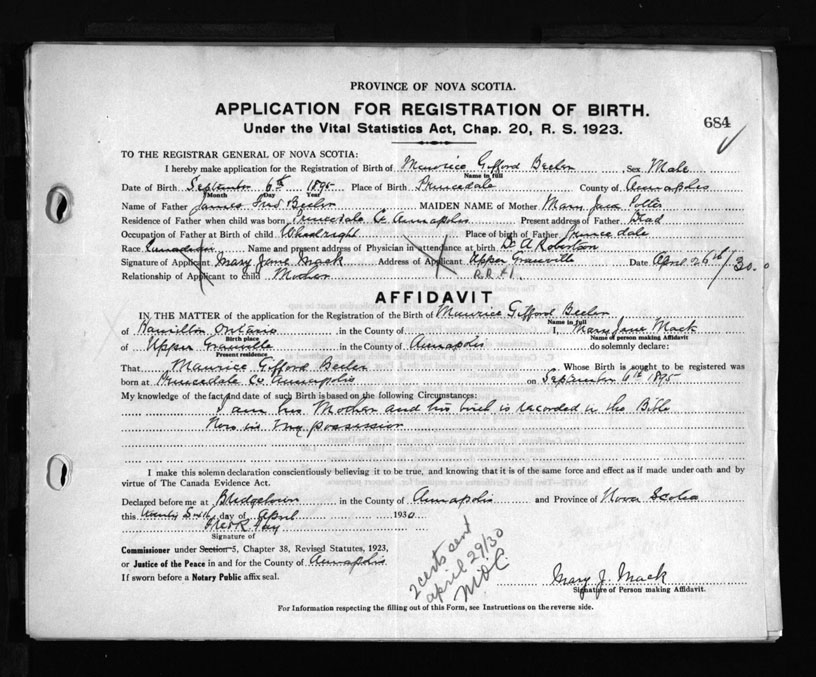 PROVINCE OF NOVA SCOTIA.
APPLICATION FOR REGISTRATION OF BIRTH.
684
Under the Vital Statistics Act, Chap. 20, R. S. 1923.
TO THE REGISTRAR GENERAL OF NOVA SCOTIA:
I hereby make application for the Registration of Birth of Maurice Gifford Beeler Sex Male
Name in full
Date of Birth September 6th 1895 Place of Birth Princedale County of Annapolis
Month Day Year
Name of Father James Beeler MAIDEN NAME of Mother Mary Jane Potter
Residence of Father when child was born Princedale Co Annapolis Present address of Father Dead
Occupation of Father at Birth of child Wheelright Place of birth of Father Princedale
Race Canadian Name and present address of Physician in attendance at birth Dr A Robertson
Signature of Applicant Mary Jane Mack Address of Applicant Upper Granville Date April 26th/30.
Relationship of Applicant to child Mother R.R #1.
AFFIDAVIT
IN THE MATTER of the application for the Registration of the Birth of Maurice Gifford Beeler
Name in full
of Hamilton Ontario in the County of I, Mary Jane Mack
Birth place Name of person making Affidavit
of Upper Granville in the County of Annapolis do solemnly declare:
Present residence
That Maurice Gifford Beeler Whose Birth is sought to be registered was
born at Princedale Co Annapolis on September 6th 1895
My knowledge of the fact and date of such Birth is based on the following Circumstances:
I am his Mother and his birth is recorded in the Bible
Now in my possession
I make this solemn declaration conscientiously believing it to be true, and knowing that it is of the same force and effect as if made under oath and by
virtue of The Canada Evidence Act.
Declared before me at Bridgetown in the County of Annapolis and Province of Nova Scotia
this twenty Sixth day of April 1930
Signature of
Commissioner under Section 5, Chapter 38, Revised Statutes, 1923,
or Justice of the Peace in and for the County of Annapolis
If sworn before a Notary Public affix seal.
2 certs sent
april 29/30
Mary J. Mack
Signature of Person making Affidavit.
For Information respecting the filling out of this Form, see Instructions on the reverse side.